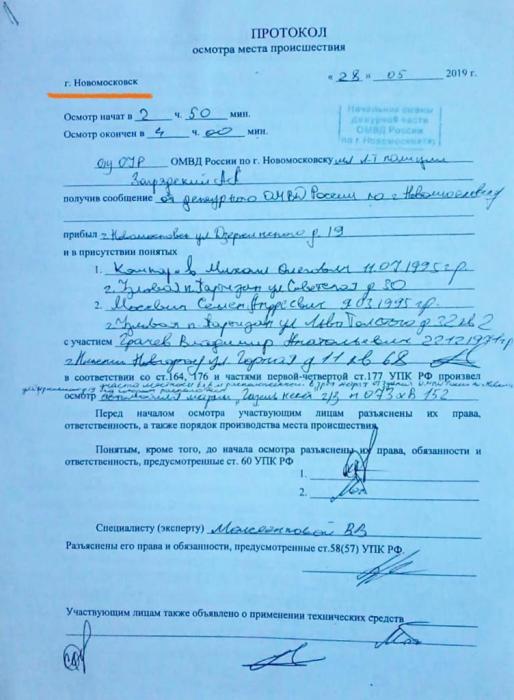 ПРОТОКОЛ
осмотра места происшествия
г. Новомосковск
« 28 » 05 2019 г.
Осмотр начат в 2 ч. 50 мин.
Осмотр окончен в 4 ч. 00 мин.
Начальник смены
дежурной части
ОМВД России
по г. Новомосковску
О/у ОУР ОМВД России по г. Новомосковску мл л-т полиции
получив сообщение от дежурного ОМВД России по г Новомосковску
прибыл г. Новомосковск ул Дзержинского д. 19
и в присутствии понятых
1. Михаил 11.07.1995 г.р.
г. Узловая п. ул Советская д 50
2. Москвин Семен Андреевич 9.03.1995 г.р.
г. Узловая п. ул Льва Толстого д 32 кв 2
с участием Грачев Владимир Анатольевич 22.12.1971 г.р.
г. Нижний Новгород ул. Горная д 11 кв 68
в соответствии со ст.164, 176 и частями первой-четвертой ст.177 УПК РФ произвел
осмотр г/з М 073 ХВ 152
Перед началом осмотра участвующим лицам разъяснены их права,
ответственность, а также порядок производства места происшествия
Понятым, кроме того, до начала осмотра разъяснены их права, обязанности и
ответственность, предусмотренные ст. 60 УПК РФ
1.
2.
Специалисту (эксперту) ВВ
Разъяснены его права и обязанности, предусмотренные ст.58(57) УПК РФ.
Участвующим лицам также объявлено о применении технических средств